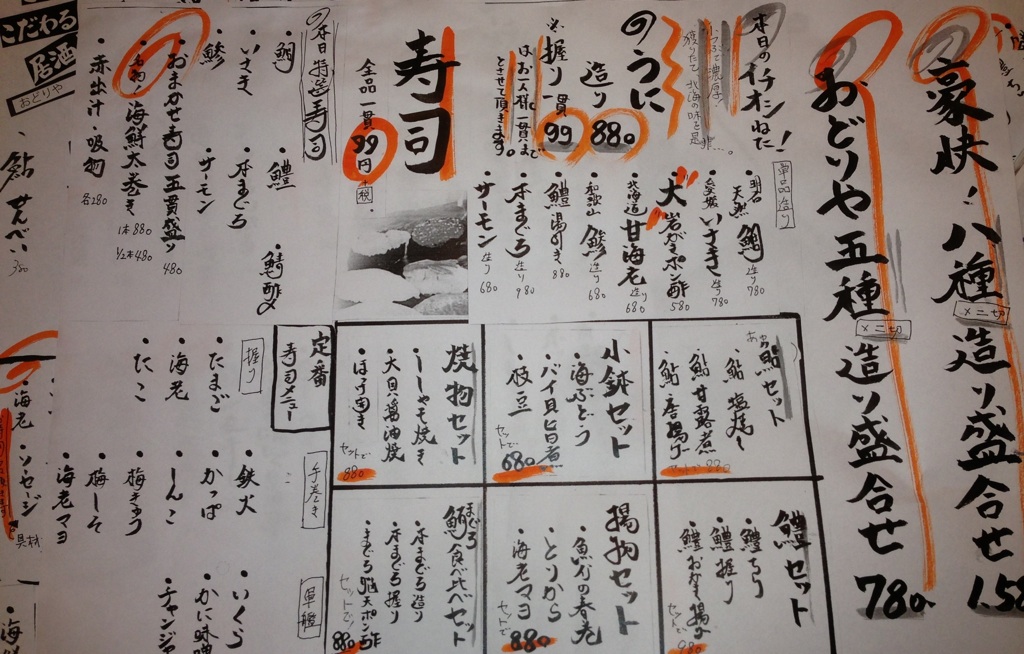 豪快!八種造り盛合せ
×二切
1.58
おどりや五種造り盛合せ
×二切
780.
本日のイチオシねた!
小つぶで濃厚!
獲りたて、北海の味を是非…。
のうに
造り 880
握り一貫 99
※
はお一人様、一貫まで
とさせて頂きます。
単品造り
明石 天然 鯛 造り 780
愛媛 いさき 造り 780
大 岩がきポン酢 580
北海道 甘海老 造り 680
和歌山 鯵 造り 680
鱧湯引き 880
本まぐろ 造り 980
サーモン 造り 680
寿司
全品一貫 99円 +税
の本日特選寿司
・鯛
・いさき
・鯵
・鱧
・本まぐろ
・サーモン
・鯖酢〆
・おまかせ寿司五貫盛り 480
・名物!海鮮太巻き 1本 880
1/2本 480
・赤出汁・吸物 各280
こだわる
居酒
おどりや
鮎せんべい 380
定番
寿司メニュー
握り
・たまご
・海老
・たこ
手巻き
・鉄火
・かっぱ
・しんこ
・梅きゅう
・梅しそ
・海老マヨ
軍艦
・いくら
・かに味噌
・チャンジャ
・海老
・ソーセージ
具材
・海
あゆ
鮎セット
・鮎塩焼き
・鮎甘露煮
・鮎唐揚げ
小鉢セット
・海ぶどう
・バイ貝旨煮
・枝豆
セットで 680
焼物セット
・ししゃも焼き
・大貝醤油焼
・ほっけ焼き
セットで 880
鱧セット
・鱧ちり
・鱧握り
・鱧おかき揚げ
セットで 980
揚物セット
・魚介の春巻
・とりから
・海老マヨ
セットで 880
まぐろ
鮪食べ比べセット
・本まぐろ造り
・本まぐろ握り
・まぐろ脳天ポン酢
セットで! 880